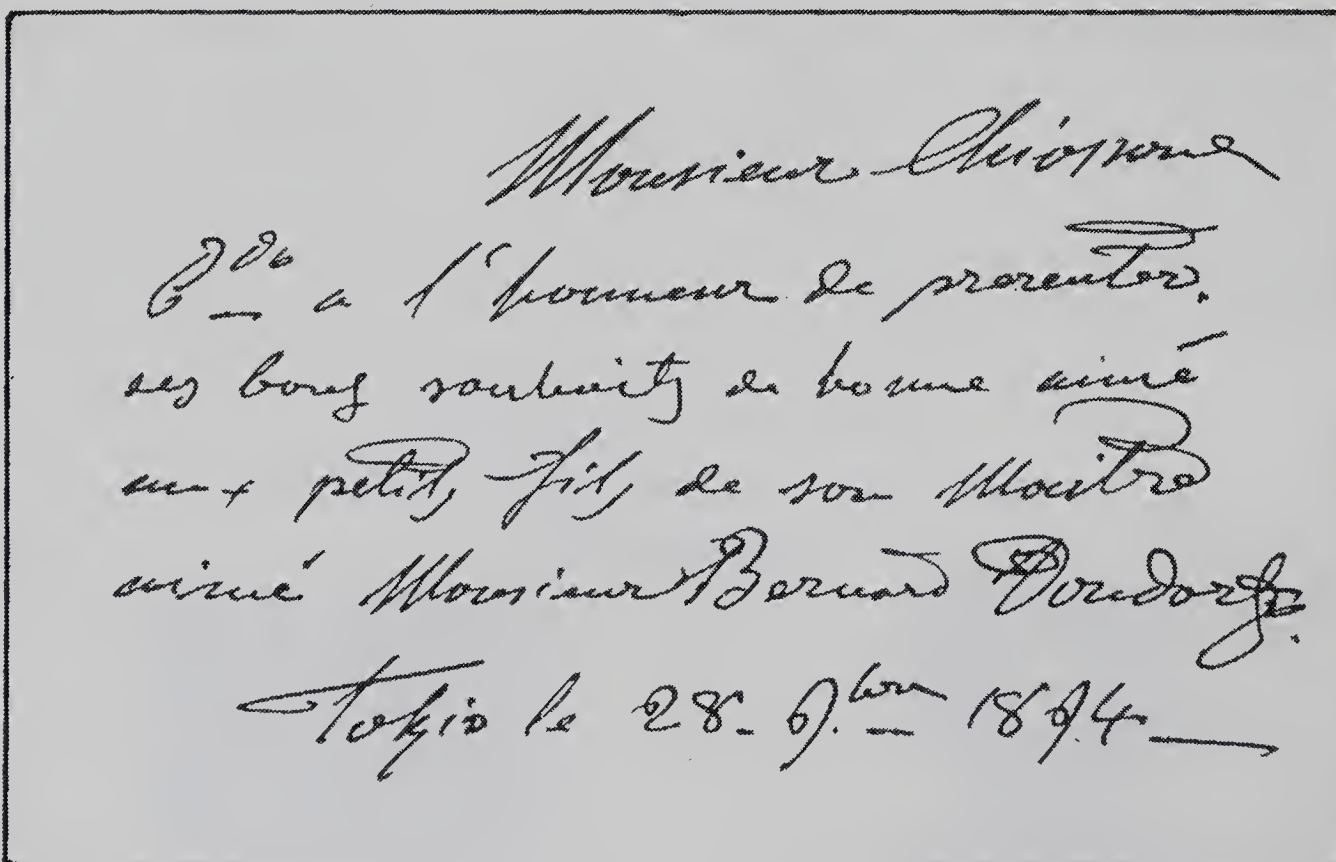 Monsieur Chiossone
E.do a l'honneur de presenter.
ses bons souhaits de bonne année
aux petits, fils, de son Maitre
aimé Monsieur Bernard Dondorf.
Tokio le 28 - 9.bre 1894